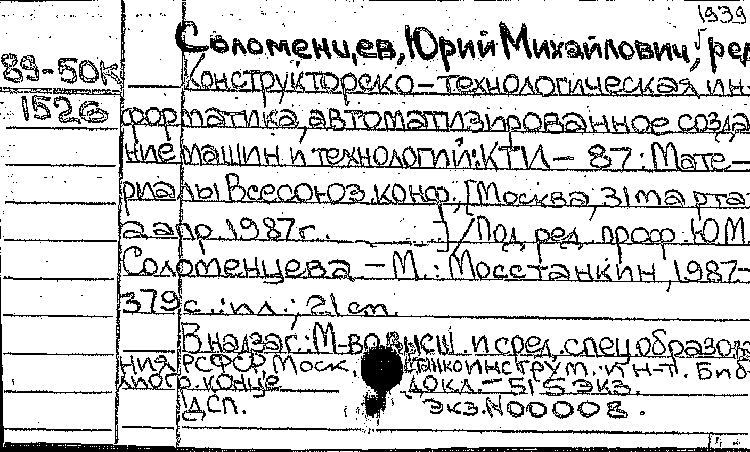 1939
Соломенцев, Юрий Михайлович, ред
89-50к
Конструкторско-технологическая ин-
1526
форматика, автоматизированное созда
ние машин и технологий: КТИ - 87: Мате-
риалы Всесоюз. конф., [Москва, 31 марта
2 апр. 1987 г. ] / Под ред. проф. Ю.М.
Соломенцева. - М.: Мосстанкин, 1987-
379 с.: ил.; 21 см.
В надзаг.: М-во высш. и сред. спец. образова
ния РСФСР, Моск. станкоинструм. ин-т. Биб
лиогр. в конце докл. - 515 экз.
ДСП. экз. N00008.